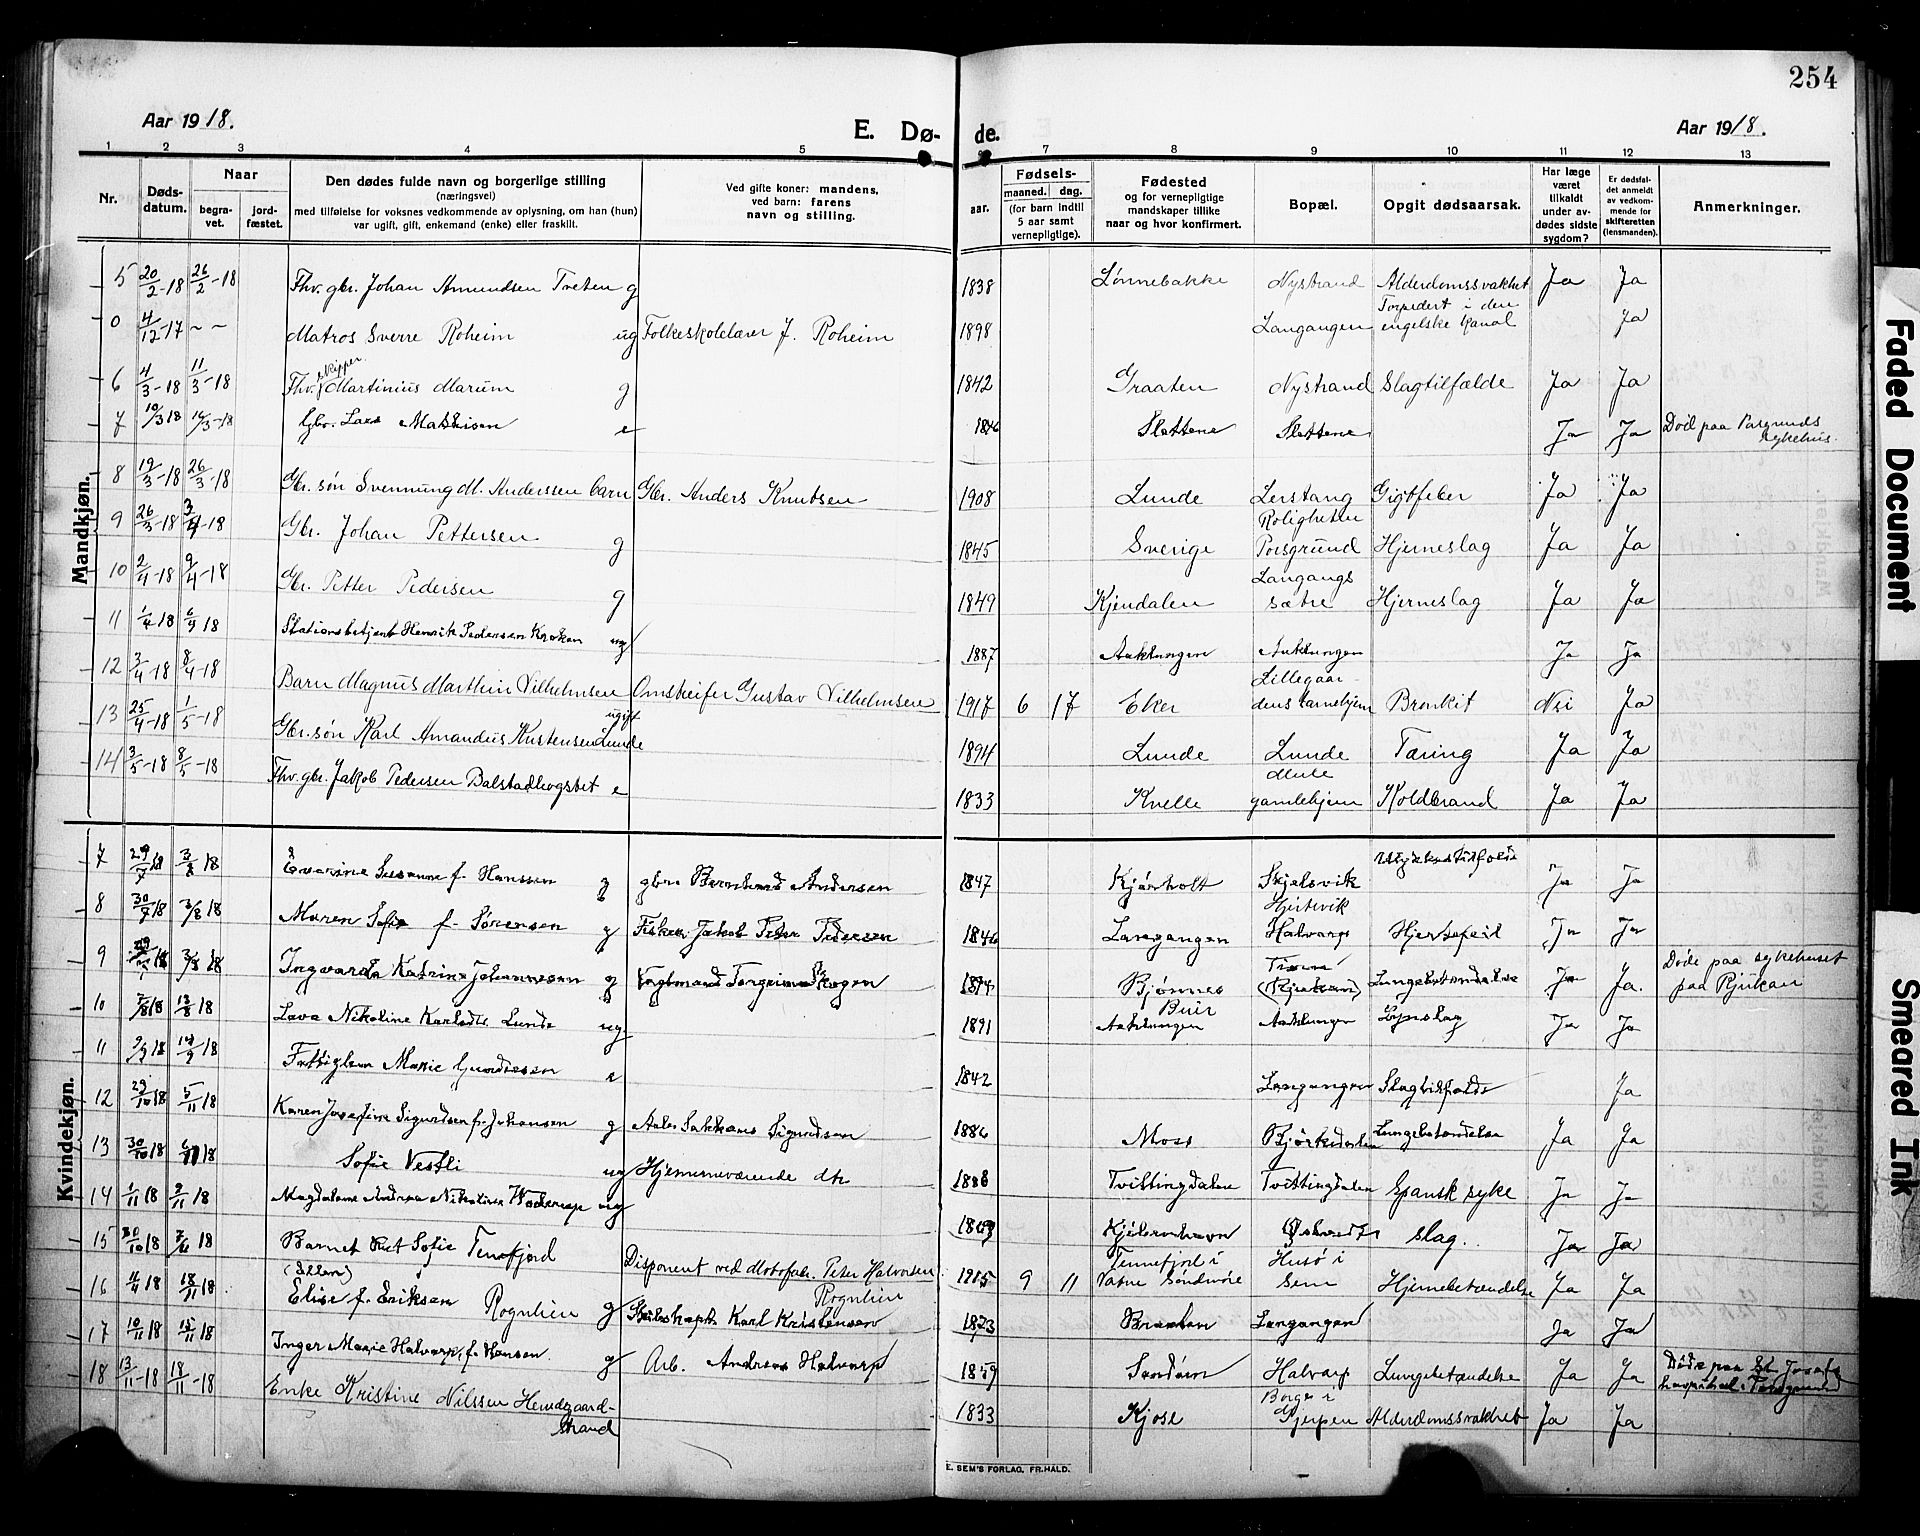 254
Aar 1918.
E. Dø-
de.
Aar 1918.
1 2 3 4 5 6 7 8 9 10 11 12 13
Nr.
Døds-
datum.
Naar
begra-
vet.
jord-
fæstet.
Den dødes fulde navn og borgerlige stilling
(næringsvei)
med tilføielse for voksnes vedkommende av oplysning, om han (hun)
var ugift, gift, enkemand (enke) eller fraskilt.
Ved gifte koner: mandens,
ved barn: farens
navn og stilling.
aar.
Fødsels-
maaned. dag.
(for barn indtil
5 aar samt
vernepligtige).
Fødested
og for vernepligtige
mandskaper tillike
naar og hvor konfirmert.
Bopæl.
Opgit dødsaarsak.
Har læge
været
tilkaldt
under av-
dødes sidste
sygdom?
Er dødsfal-
det anmeldt
av vedkom-
mende for
skifteretten
(lensmanden).
Anmerkninger.
Mandkjøn.
5 20/2-18 26/2-18 Fhv. gbr. Johan Amundsen Treten g 1838 Lønnebakke Nystrand Alderdomssvakhet Ja Ja
0 4/12-17 ~ ~ Matros Sverre Roheim ug Folkeskolelærer J. Roheim 1898 Langangen Torpedert i den
engelske kanal Ja
6 4/3-18 11/3-18 Fhv. skipper Martinius Marum g 1842 Graaten Nystrand Slagtilfælde Ja Ja
7 10/3 18 Gbr. Lars Mathisen e Slottene Slottene Ja Ja Død paa Porsgrunds
sykehus.
8 19/3-18 26/3-18 Gbr. søn Svennung M. Anderssen barn Gbr. Anders Knutsen 1908 Lunde Lerstang Gigtfeber Ja Ja
9 26/3-18 3/4-18 Gbr. Johan Pettersen g 1845 Sverige Roligheten
Porsgrund Hjerneslag Ja Ja
10 2/4-18 9/4-18 Gbr. Petter Pedersen g 1849 Kjendalen Langangs
sætre Hjerneslag Ja Ja
11 Stationsbetjent Henrik Pedersen Kroken ug 1887 Aaklungen Aaklungen Ja Ja
12 3/4-18 8/4-18 Barn Magnus Marthin Vilhelmsen Omstreifer Gustav Vilhelmsen 1917 6 17 Eker Lillegaar-
dens barnehjem Bronkit Nei Ja
13 25/4-18 1/5-18 Gbr. søn Karl Amandus Kristensen Lunde ugift 1894 Lunde Lunde Tæring Ja Ja
14 3/5-18 8/5-18 Fhv. gbr. Jakob Pedersen Balstadhogstet e 1833 Kvelle gamlehjem Koldbrand Ja Ja
Kvindekjøn.
7 29/7 18 3/8 18 Susanne f. Hanssen g gbr. Bernhard Andersen 1847 Kjørholt Skjelsvik Ja Ja
8 30/7 18 3/8 18 Maren Sofie f. Sørensen g Fisker Jakob Peter Pedersen 1846 Langangen Halvarp Hjertefeil Ja Ja
9 Ingvarda Katrine Johannesen g Torgeirsen 1894 Bjønnes (Rjukan) Lungebetændelse Ja Ja. Døde paa sykehuset
paa Rjukan
10 7/8 18 13/8 18 Lava Nikoline Karlsdtr. Lunde ug 1891 Aaklungen Aaklungen Lynslag Ja Ja
11 Fattiglem Marie Gundersen e 1842 Langangen Slagtilfælde Ja
12 29/10 18 5/11 18 Karen Josefine Sigurdsen f. Johansen g Sigurdsen 1886 Moss Bjørkedalen Lungebetændelse Ja Ja
13 30/10 18 6/11 18 Sofie Vestli ug Hjemmeværende dtr. 1888 Tvittingdalen Tvittingdalen Spansk syke Ja Ja
14 1/11 18 9/11 18 Magdalene Andrea Nikoline ug Kjøbenhavn slag. Ja Ja
15 30/10 18 Barnet Rut Sofie Tennfjord
(Ellen) Disponent ved Motorfabr. Peter Halvorsen 1915 9 11 Tennefjord i
Vatne Søndmøre Husø i
Sem Hjernebetændelse Ja Ja
16 18/11 18 Elise f. Eriksen Rognlien g Rognlien
Karl Kristensen 1873 Langangen Ja Ja
17 10/11 18 Inger Marie Halvarp, f. Hansen. g Arb. Andreas Halvarp Halvarp Lungebetændelse Ja Ja Døde paa St. Josefs
hospital i Porsgrund
18 13/11-18 18/11-18 Enke Kristine Nilssen Hemdgaard-
strand 1833 Kjose Borge i
Gjerpen Alderdomssvakhet Ja Ja
E. SEM'S FORLAG, FR.HALD.
Faded Document
Smeared Ink